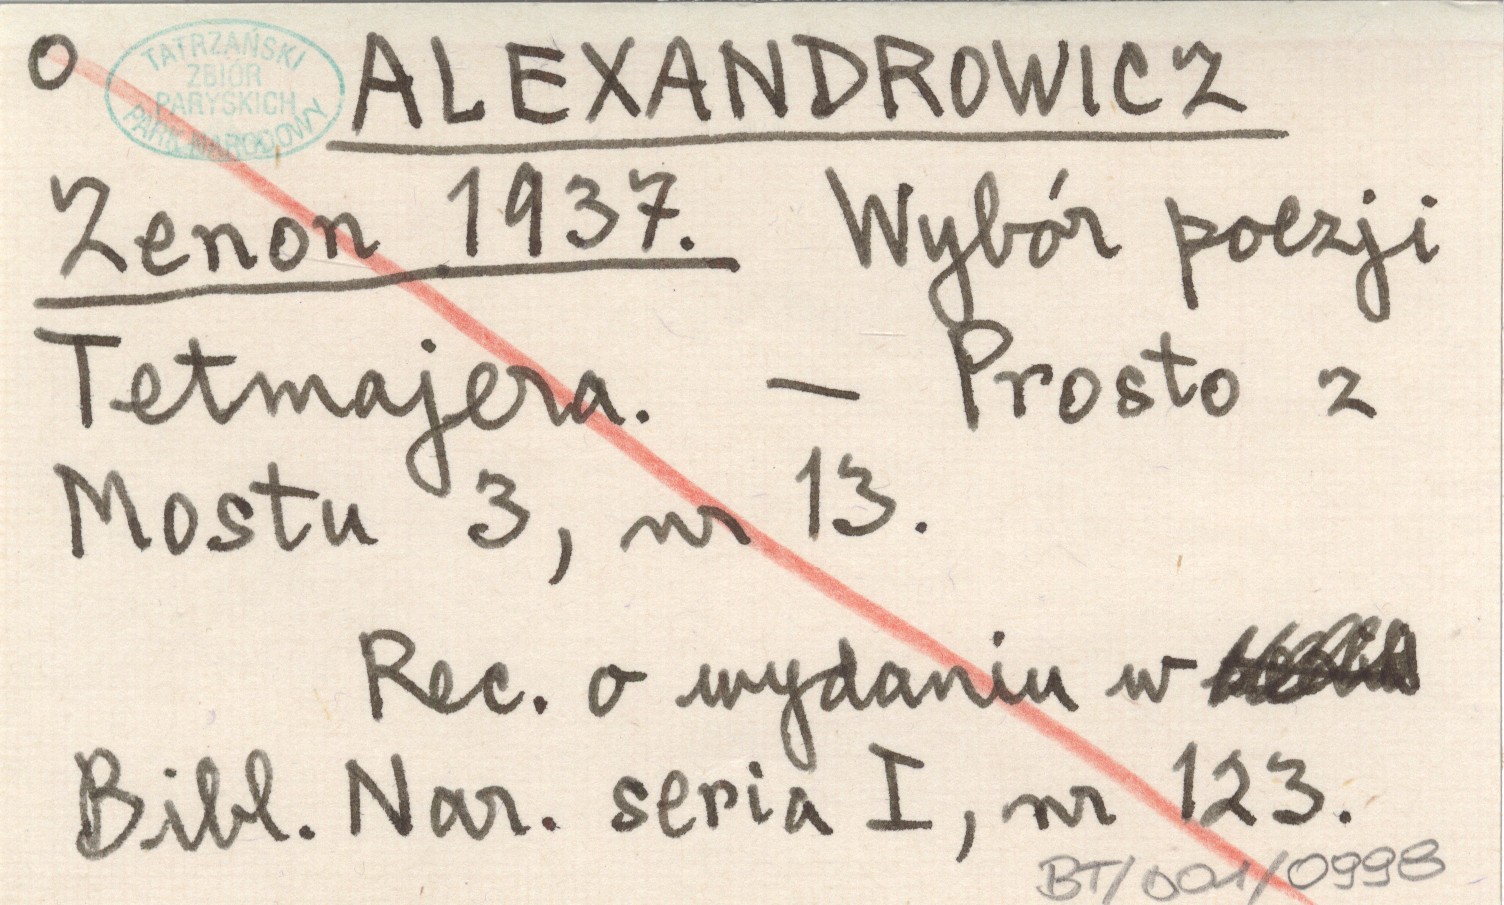 O ALEXANDROWICZ
TATRZAŃSKI
ZBIÓR
PARYSKICH
PARK NARODOWY
Zenon 1937. Wybór poezji
Tetmajera. — Prosto z
Mostu 3, nr 13.
Rec. o wydaniu w
Bibl. Nar. seria I, nr 123.
BT/001/0998